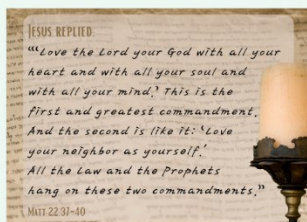 JESUS REPLIED:
"'Love the Lord your God with all your
heart and with all your soul and
with all your mind.' This is the
first and greatest commandment.
And the second is like it: 'Love
your neighbor as yourself.'
All the Law and the Prophets
hang on these two commandments."
MATT 22:37-40